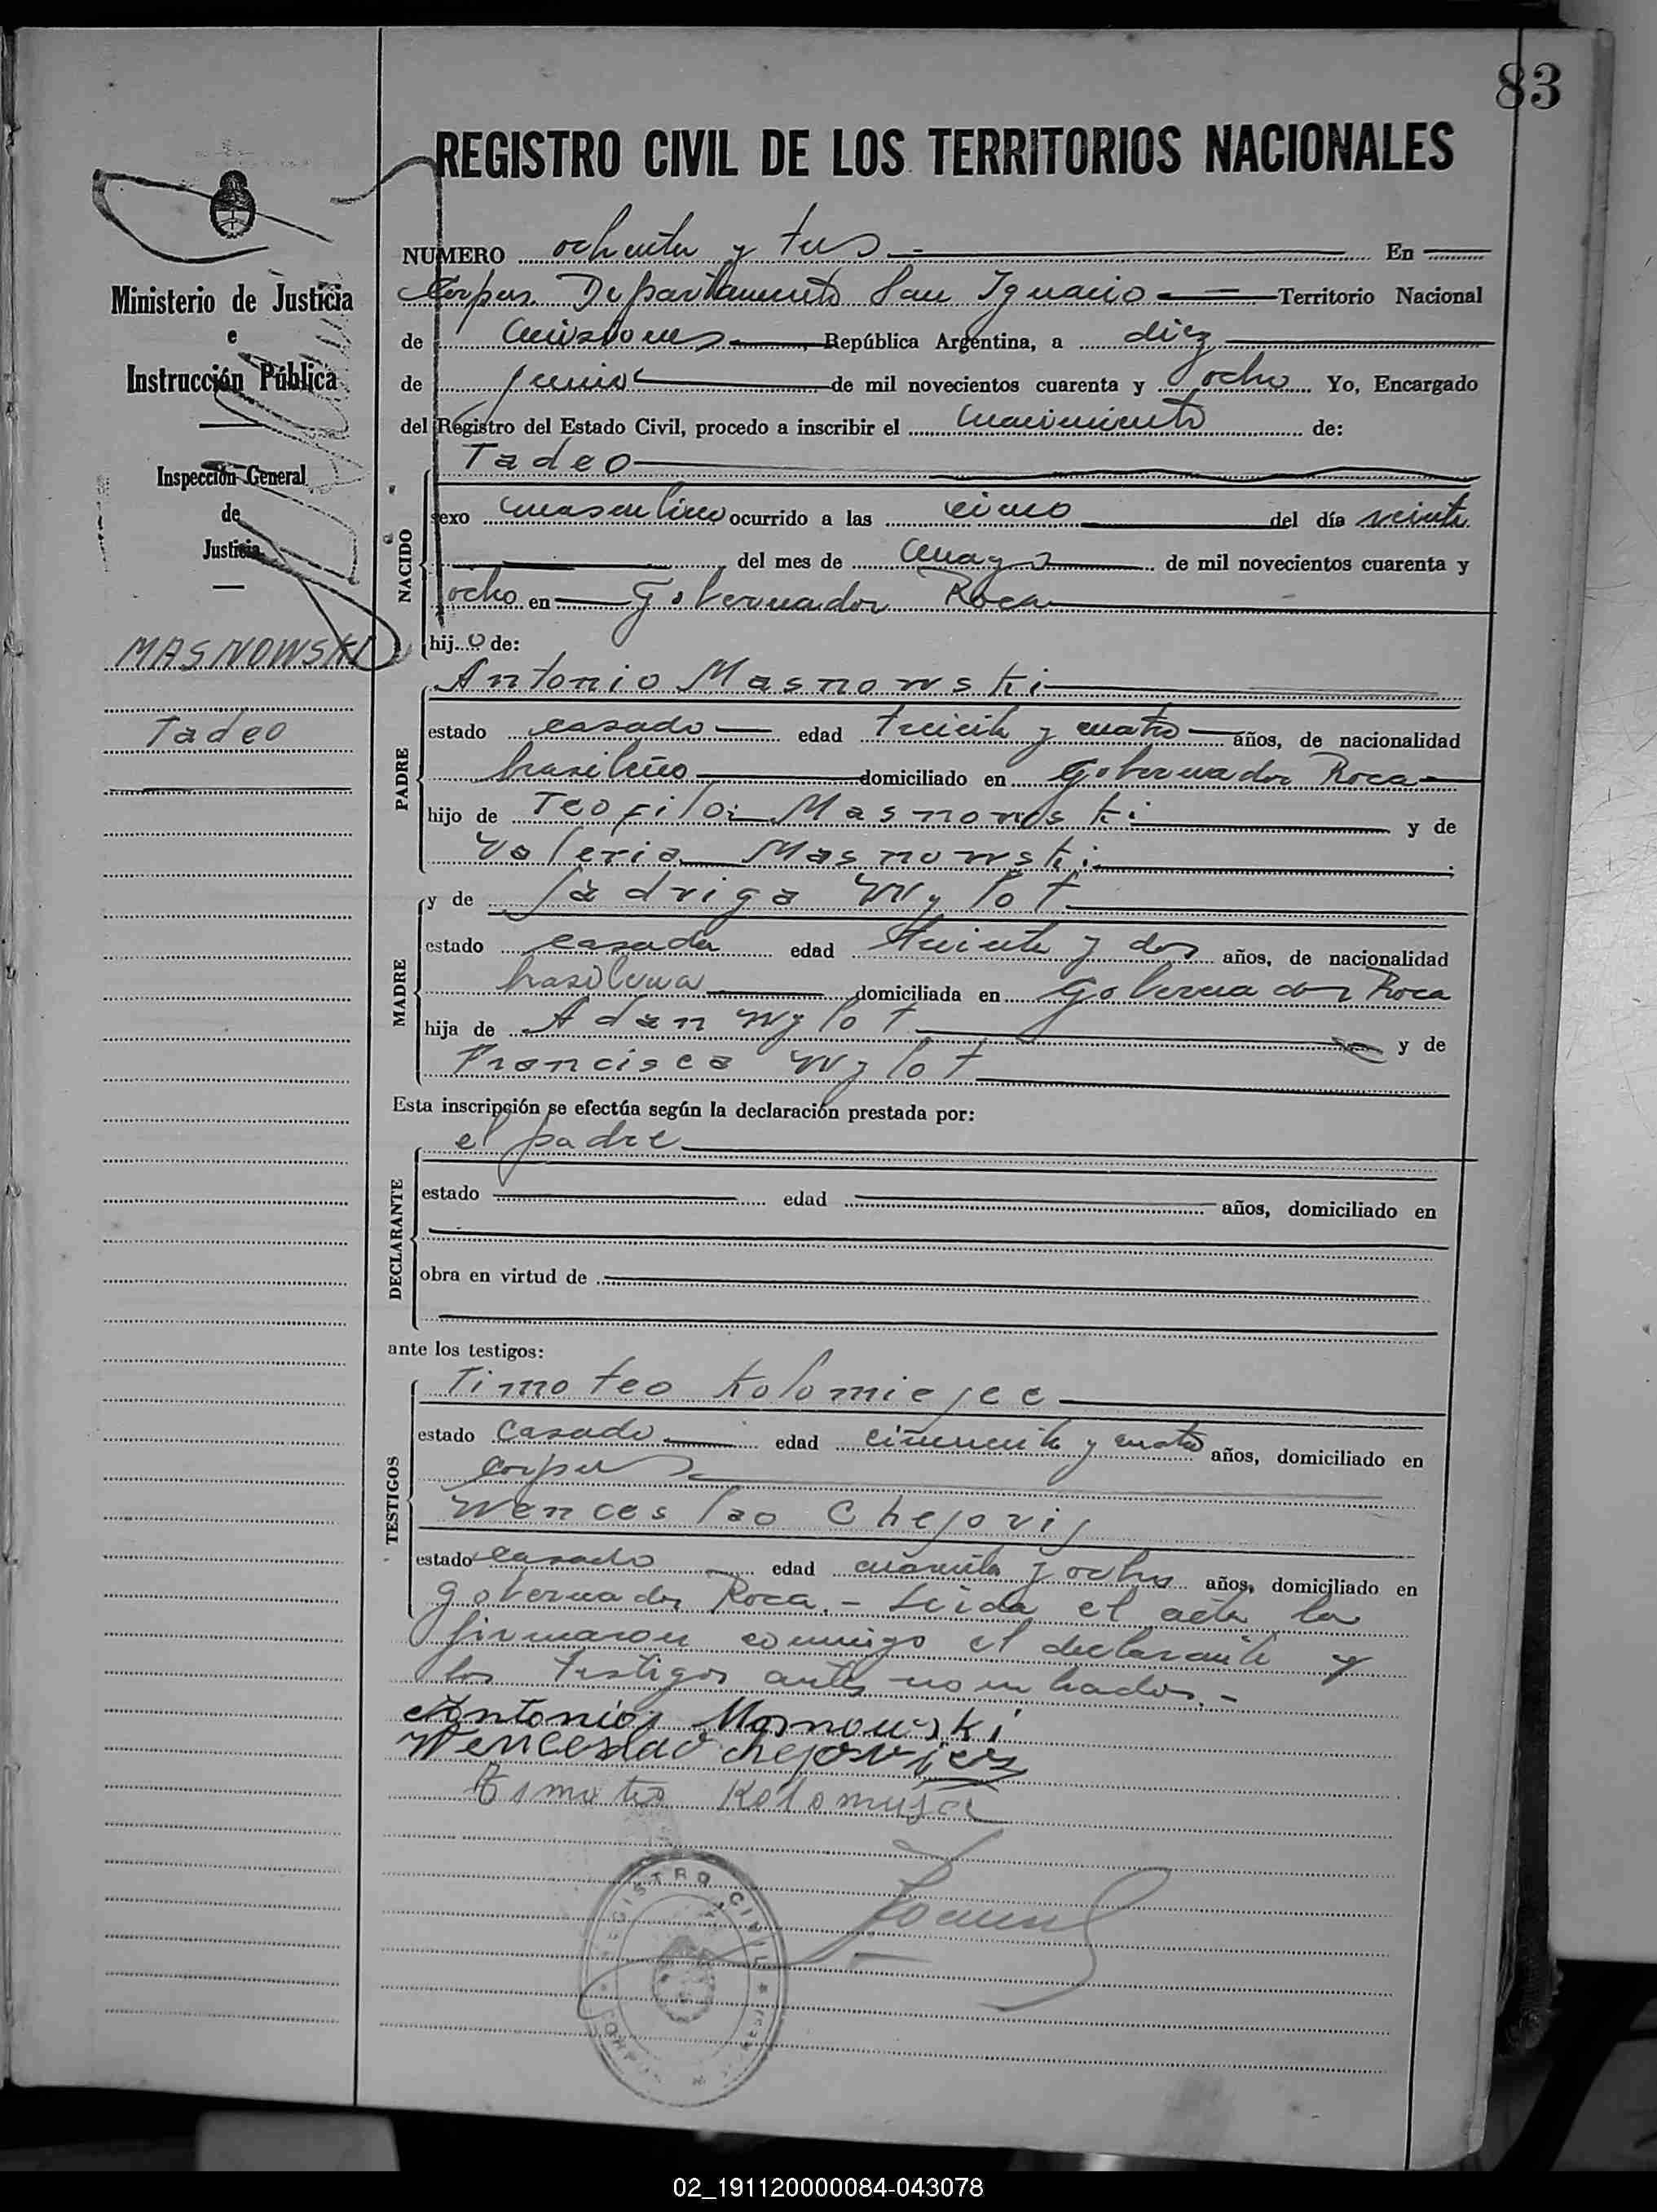 83
REGISTRO CIVIL DE LOS TERRITORIOS NACIONALES
Ministerio de Justicia
e
Instrucción Pública
Inspección General
de
Justicia
MASNOWSKI
Tadeo
NUMERO ochenta y tres En
Corpus Departamento San Ignacio Territorio Nacional
de Misiones República Argentina, a diez
de junio de mil novecientos cuarenta y ocho Yo, Encargado
del Registro del Estado Civil, procedo a inscribir el nacimiento de:
Tadeo
NACIDO
sexo masculino ocurrido a las cinco del día veinte
del mes de mayo de mil novecientos cuarenta y
ocho en Gobernador Roca
hijo de:
Antonio Masnowski
PADRE
estado casado edad treinta y cuatro años, de nacionalidad
brasileño domiciliado en Gobernador Roca
hijo de Teofilo Masnowski y de
Valeria Masnowski
y de Jadviga Wylot
MADRE
estado casada edad treinta y dos años, de nacionalidad
brasilena domiciliada en Gobernador Roca
hija de Adan Wylot y de
Francisca Wylot
Esta inscripción se efectúa según la declaración prestada por:
el padre
DECLARANTE
estado edad años, domiciliado en
obra en virtud de
ante los testigos:
Timoteo Kolomiejec
TESTIGOS
estado casado edad cincuenta y cuatro años, domiciliado en
Corpus
Wenceslao Chejovij
estado casado edad cuarenta y ocho años, domiciliado en
Gobernador Roca. - Leida el acta la
firmaron conmigo el declarante y
los testigos antes nombrados. -
Antonio Masnowski
Wenceslao
REGISTRO CIVIL
CORPUS
02_191120000084-043078